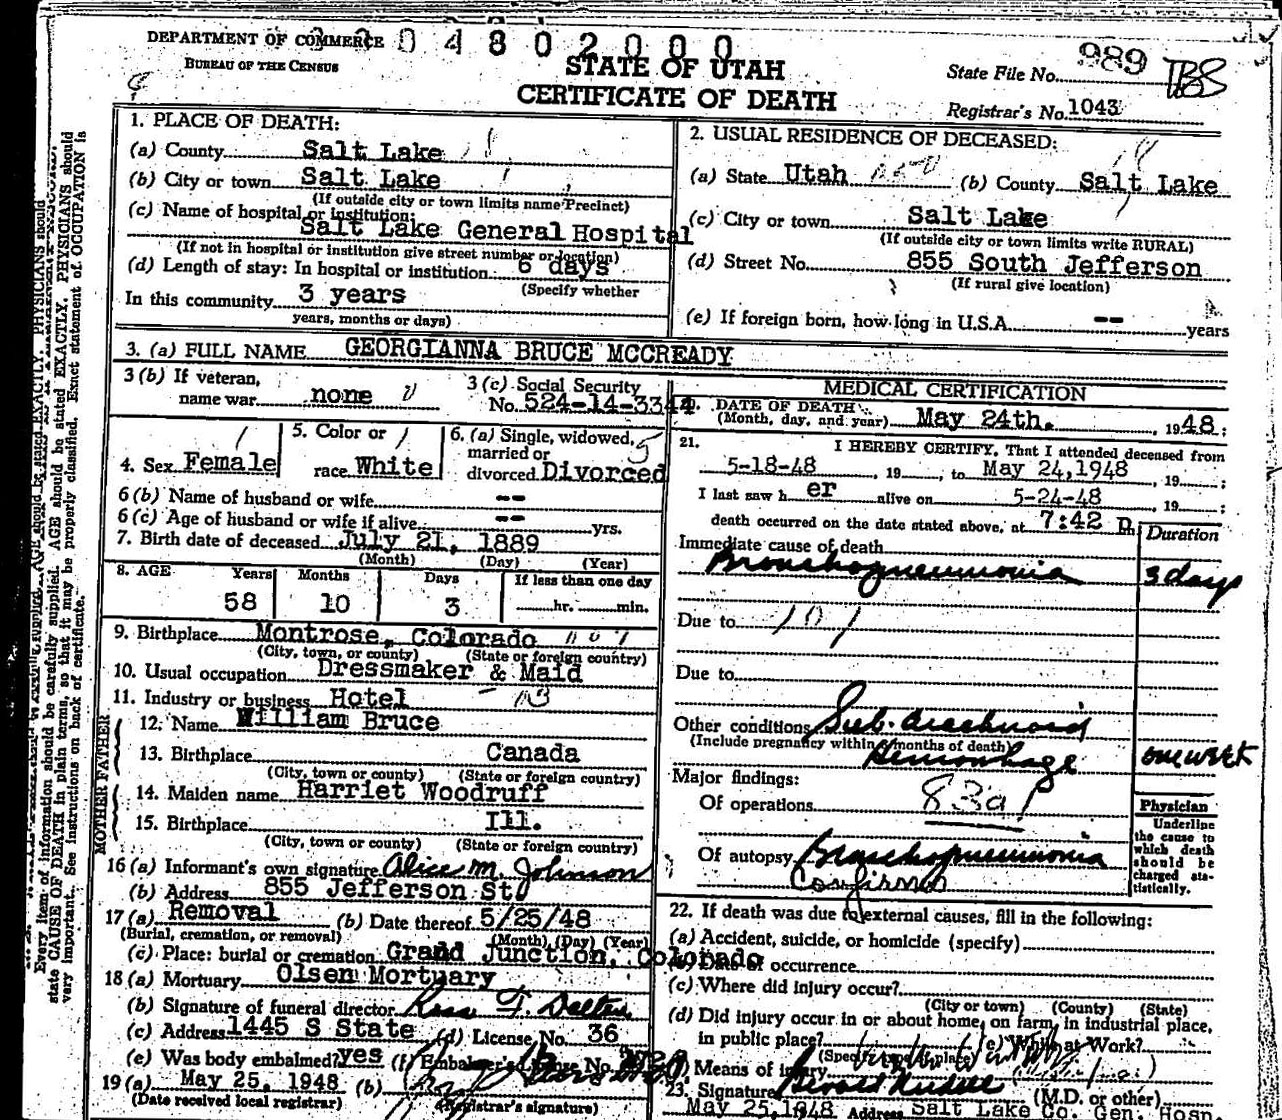 DEPARTMENT OF COMMERCE
BUREAU OF THE CENSUS
0 4 8 0 2 0 0 0
STATE OF UTAH
CERTIFICATE OF DEATH
State File No. 989 TBS
Registrar's No. 1043
1. PLACE OF DEATH:
(a) County Salt Lake
(b) City or town Salt Lake
(If outside city or town limits name Precinct)
(c) Name of hospital or institution:
Salt Lake General Hospital
(If not in hospital or institution give street number or location)
(d) Length of stay: In hospital or institution 6 days
(Specify whether
In this community 3 years
years, months or days)
2. USUAL RESIDENCE OF DECEASED:
(a) State Utah (b) County Salt Lake
(c) City or town Salt Lake
(If outside city or town limits write RURAL)
(d) Street No. 855 South Jefferson
(If rural give location)
(e) If foreign born, how long in U.S.A. -- years
3. (a) FULL NAME GEORGIANNA BRUCE MCCREADY
3 (b) If veteran,
name war none
3 (c) Social Security
No. 524-14-3344
4. Sex Female
5. Color or
race White
6. (a) Single, widowed,
married or
divorced Divorced
6 (b) Name of husband or wife --
6 (c) Age of husband or wife if alive -- yrs.
7. Birth date of deceased July 21, 1889
(Month) (Day) (Year)
8. AGE Years Months Days If less than one day
58 10 3 hr. min.
9. Birthplace Montrose, Colorado
(City, town, or county) (State or foreign country)
10. Usual occupation Dressmaker & Maid
11. Industry or business Hotel
FATHER
12. Name William Bruce
13. Birthplace Canada
(City, town or county) (State or foreign country)
MOTHER
14. Maiden name Harriet Woodruff
15. Birthplace Ill.
(City, town or county) (State or foreign country)
16 (a) Informant's own signature Alice M. Johnson
(b) Address 855 Jefferson St
17 (a) Removal (b) Date thereof 5/25/48
(Burial, cremation, or removal) (Month) (Day) (Year)
(c) Place: burial or cremation Grand Junction, Colorado
18 (a) Mortuary Olsen Mortuary
(b) Signature of funeral director
(c) Address 1445 S State (d) License No. 36
(e) Was body embalmed? yes (f) Embalmer's License No.
19 (a) May 25, 1948 (b)
(Date received local registrar) (Registrar's signature)
MEDICAL CERTIFICATION
DATE OF DEATH
(Month, day, and year) May 24th. , 1948;
21. I HEREBY CERTIFY, That I attended deceased from
5-18-48 , 19 , to May 24,1948 , 19 ;
I last saw her alive on 5-24-48 , 19 ;
death occurred on the date stated above, at 7:42 p m.
Duration
Immediate cause of death
Bronchopneumonia 3 days
Due to
Due to
Other conditions Sub-arachnoid
(Include pregnancy within 3 months of death)
Hemorrhage one week
Major findings:
Of operations 83a
Of autopsy Bronchopneumonia
Confirmed
Physician
Underline
the cause to
which death
should be
charged sta-
tistically.
22. If death was due to external causes, fill in the following:
(a) Accident, suicide, or homicide (specify)
(b) Date of occurrence
(c) Where did injury occur?
(City or town) (County) (State)
(d) Did injury occur in or about home, on farm, in industrial place,
in public place? (e) While at Work?
(Specify type of place)
Means of injury
23. Signature (M.D. or other)
May 25,1948 Address Salt Lake Co. Gen. Hosp.
Every item of information should be carefully supplied. AGE should be stated EXACTLY. PHYSICIANS should
state CAUSE OF DEATH in plain terms, so that it may be properly classified. Exact statement of OCCUPATION is
very important. See instructions on back of certificate.